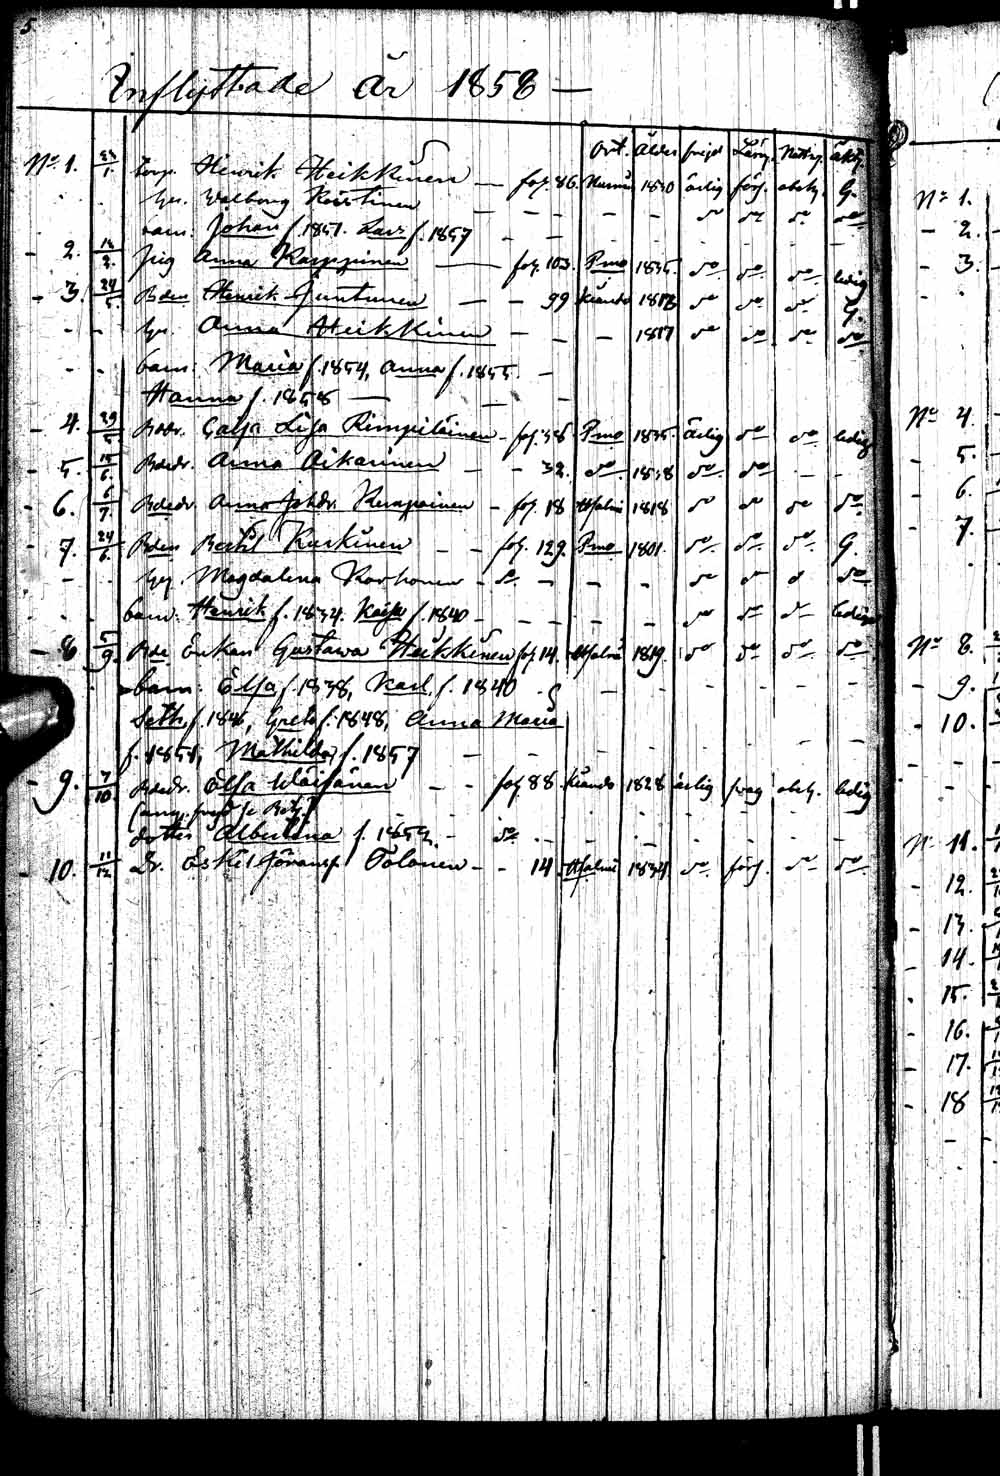 5.
Inflyttade år 1858 —
Ort. Ålder frejd Läsn. Nattv. äkt.
No 1. 23/1. Torp. Henrik Heikkinen — fol. 86. 1830 ärlig förs. obeh. G.
hu. Walborg Kristinen — — — — do do do do
barn: Johan f. 1851. Lars f. 1857 — —
- 2. 2. Pig Anna Karppinen — fol. 103. Pmo 1835. do do do ledig
- 3. 24/5. Bden Henrik Juntunen — — 99 Kiando 1813 do do do G.
- - hu. Anna Heikkinen — — — 1817 do do do do
- - barn: Maria f. 1854, Anna f. 1855. —
Hanna f. 1858 — —
- 4. 29/5 Bddr. Caisa Lisa Rimpiläinen - fol. 38 Pmo 1835. ärlig do do ledig
- 5. 15/6. Bdedr. Anna Aikarinen — - 32. do 1838 do do - -
- 6. 6/7 Bdedr. Anna Johdr. Kemppainen - fol. 18 Hjalmi 1818 do do do do
- 7. 24/6. Bden Bertil Kurkinen - - fol. 129. Pmo 1801. do do do G.
- hu. Magdalena Korhonen - do — — — do do do do
barn: Henrik f. 1834. Kaisa f. 1840 - - - - do do do ledig
- 8 5/9. Bde Enkan Gustawa Heikkinen fol. 14. Hjalmi 1819. do do do do
- barn: Elsa f. 1838, Karl f. 1840 - - - - -
Seth f. 1846, Greta f. 1848, Anna Maria
f. 1851, Mathilda f. 1857 — — - - -
- 9. 7/10. Bdedr. Elsa Wäisänen - - fol. 88. Kiando 1828 ärlig svag obeh. ledig
dotter Albertina f. 1854. - do - - - - - -
- 10. 11/12 Dr. Eskil Göransf. Tolonen - - 14. Hjalmi 1834. do förs. do do
No 1.
- 2.
- 3.
No 4.
- 5.
- 6.
- 7.
No 8.
- 9.
- 10.
No 11.
- 12.
- 13.
- 14.
- 15.
- 16.
- 17.
- 18